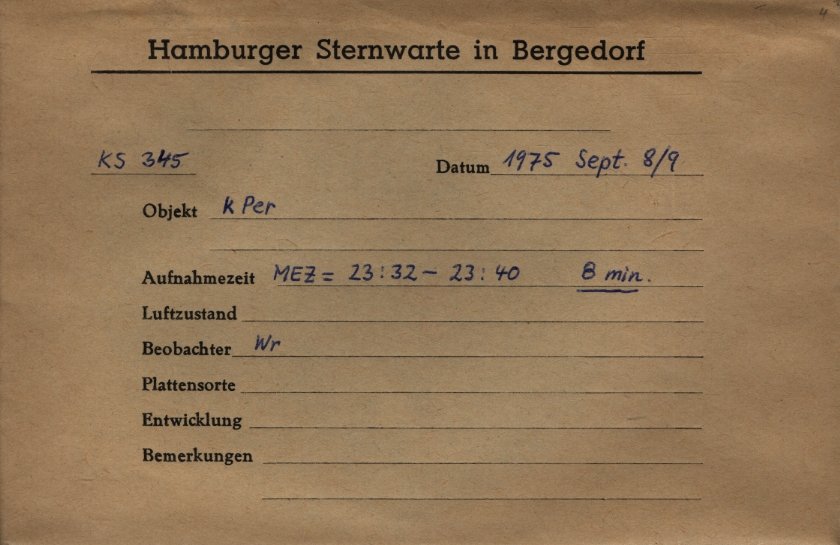 Hamburger Sternwarte in Bergedorf
KS 345 Datum 1975 Sept. 8/9
Objekt k Per
Aufnahmezeit MEZ = 23:32 – 23:40 8 min.
Luftzustand
Beobachter Wr
Plattensorte
Entwicklung
Bemerkungen